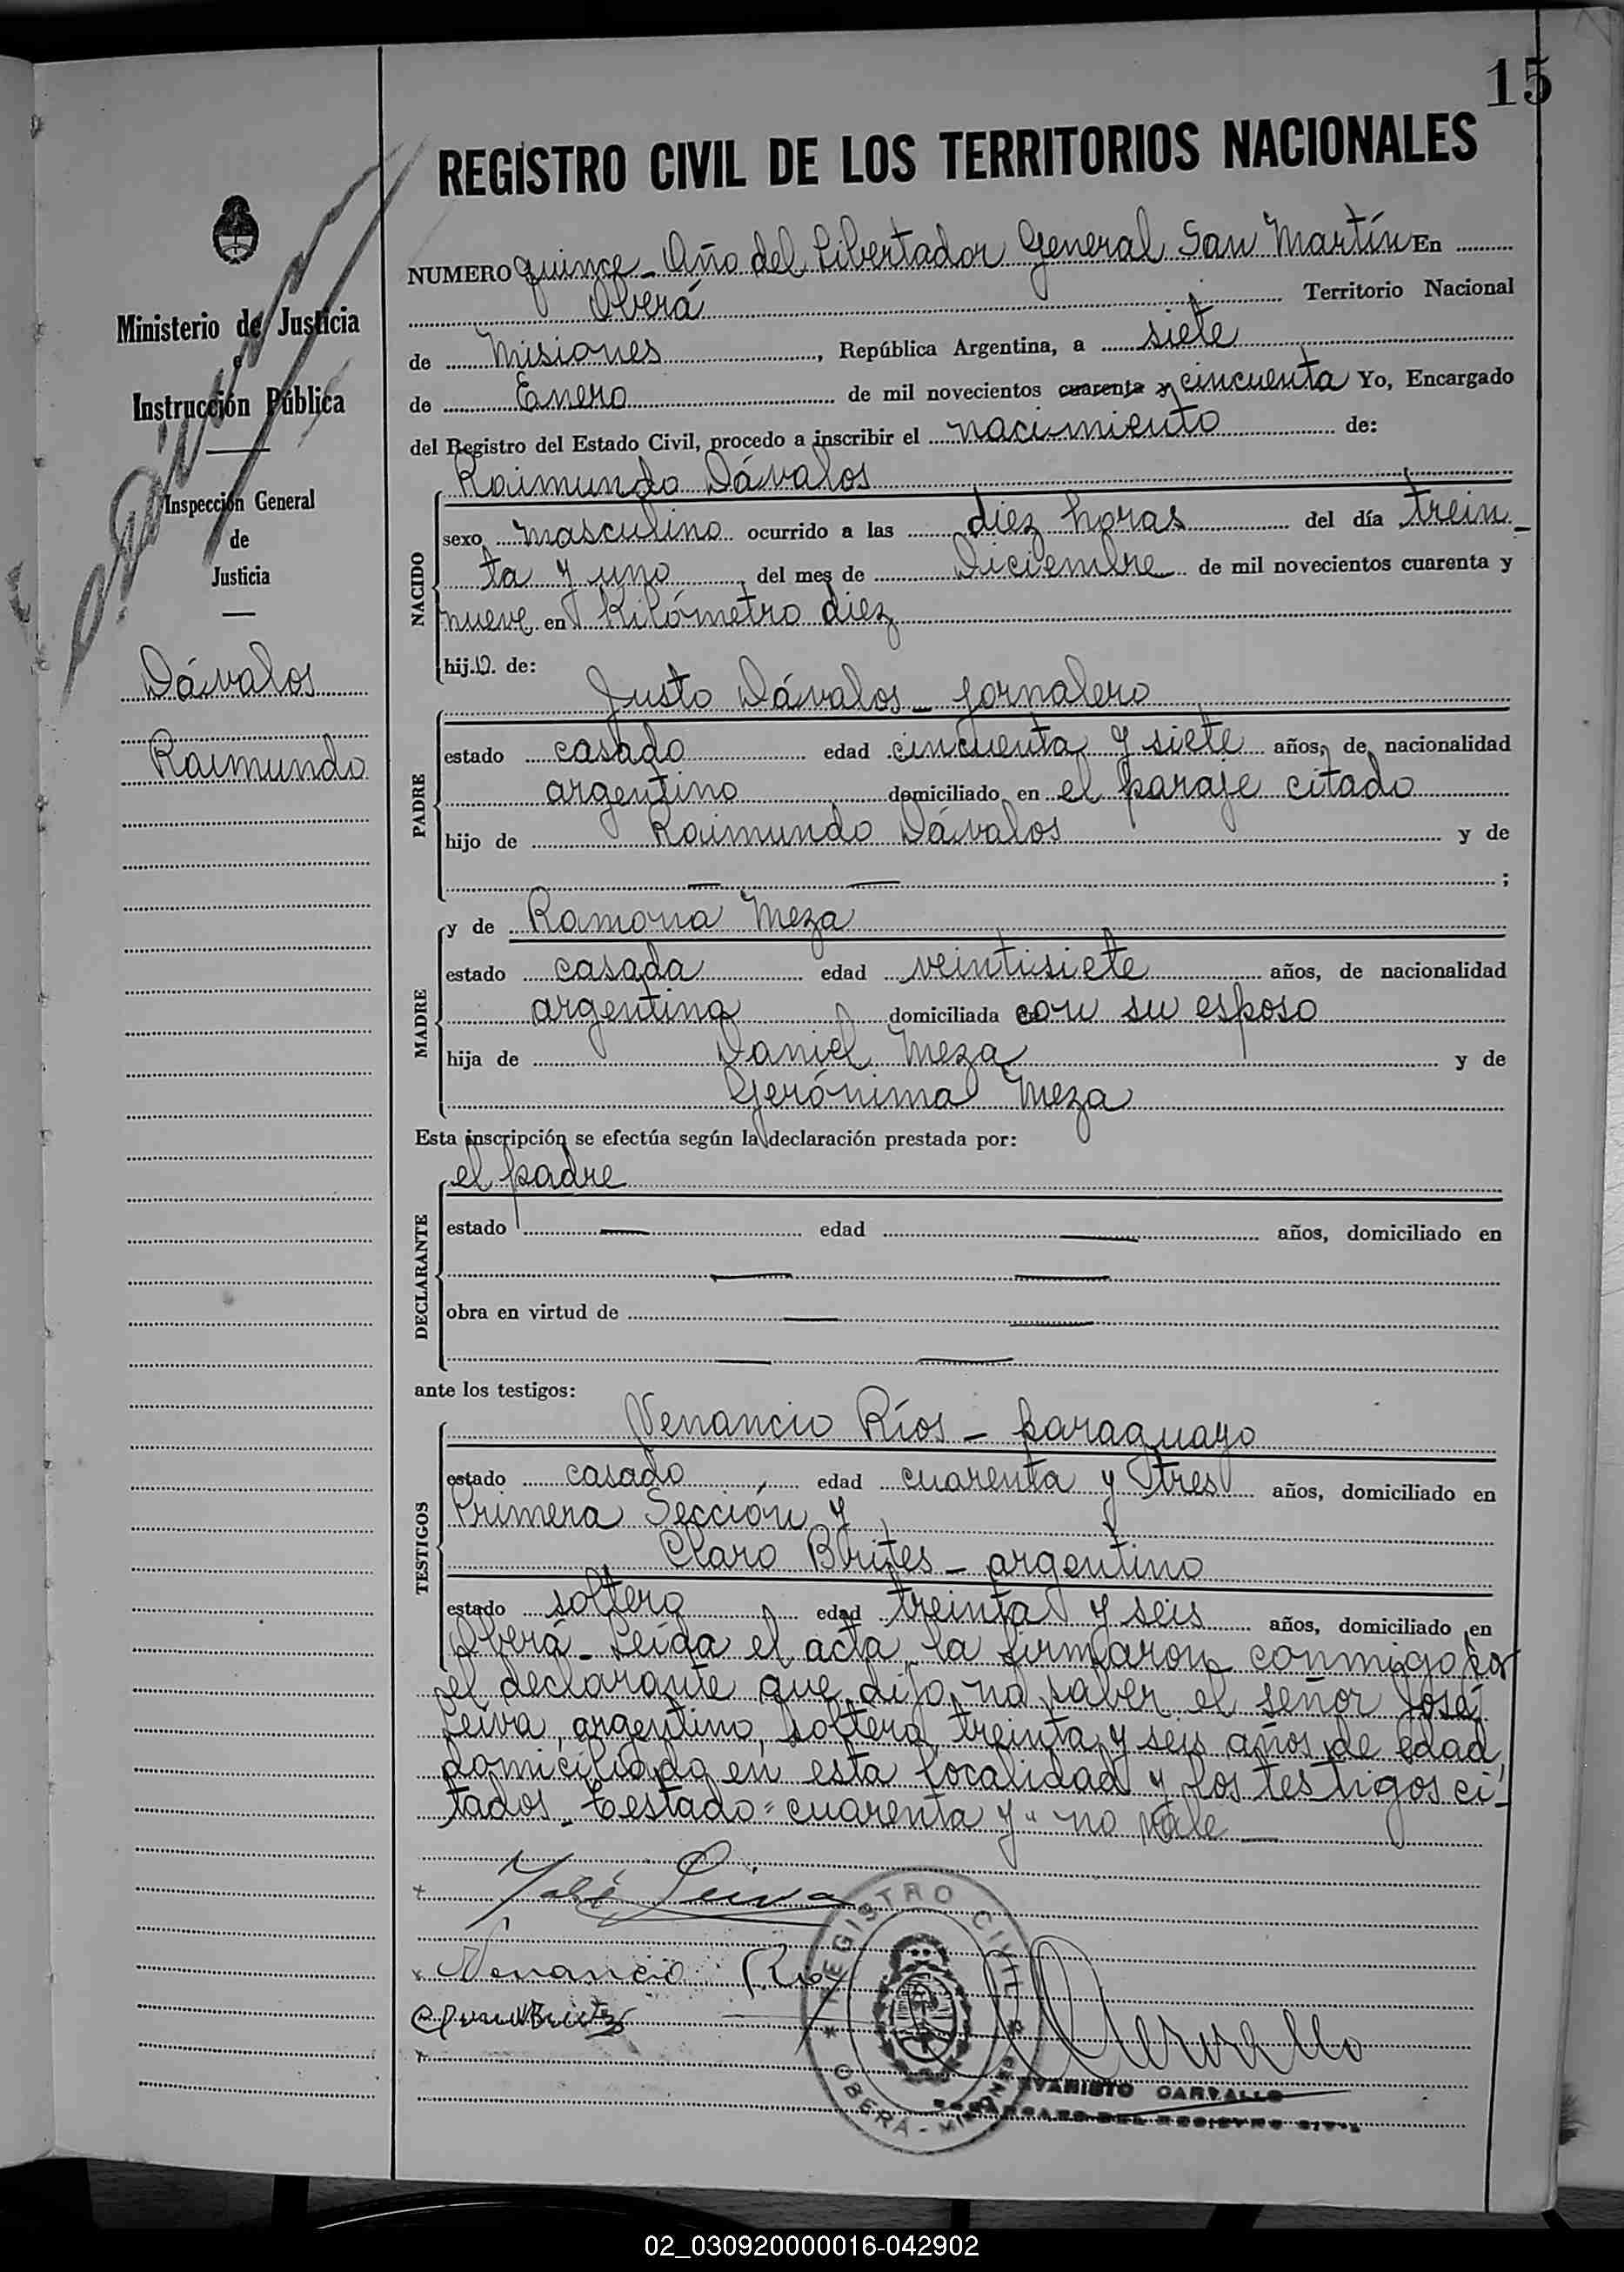 15
REGISTRO CIVIL DE LOS TERRITORIOS NACIONALES
NUMERO quince - Año del Libertador General San Martín En
Oberá Territorio Nacional
de Misiones, República Argentina, a siete
de Enero de mil novecientos cuarenta y cincuenta Yo, Encargado
del Registro del Estado Civil, procedo a inscribir el nacimiento de:
Raimundo Dávalos
NACIDO
sexo masculino ocurrido a las diez horas del día trein-
ta y uno, del mes de Diciembre de mil novecientos cuarenta y
nueve en Kilómetro diez
hijo de:
Justo Dávalos - jornalero
PADRE
estado casado edad cincuenta y siete años, de nacionalidad
argentino domiciliado en el paraje citado
hijo de Raimundo Dávalos y de
— — ;
y de Ramona Meza
MADRE
estado casada edad veintisiete años, de nacionalidad
argentina domiciliada con su esposo
hija de Daniel Meza y de
Gerónima Meza
Esta inscripción se efectúa según la declaración prestada por:
el padre
DECLARANTE
estado — edad — años, domiciliado en
— —
obra en virtud de — —
— —
ante los testigos:
Venancio Ríos - paraguayo
TESTIGOS
estado casado edad cuarenta y tres años, domiciliado en
Primera Sección y
Claro Brites - argentino
estado soltero edad treinta y seis años, domiciliado en
Oberá - Leída el acta la firmaron conmigo por
el declarante que dijo no saber el señor José
Leiva, argentino, soltero, treinta y seis años de edad,
domiciliado en esta localidad y los testigos ci-
tados. Testado "cuarenta y" no vale —
José Leiva
Venancio Rios
REGISTRO CIVIL
OBERÁ - MISIONES
EVARISTO CARVALLO
ENCARGADO DEL REGISTRO CIVIL
Ministerio de Justicia
e
Instrucción Pública
Inspección General
de
Justicia
Dávalos
Raimundo
02_030920000016-042902